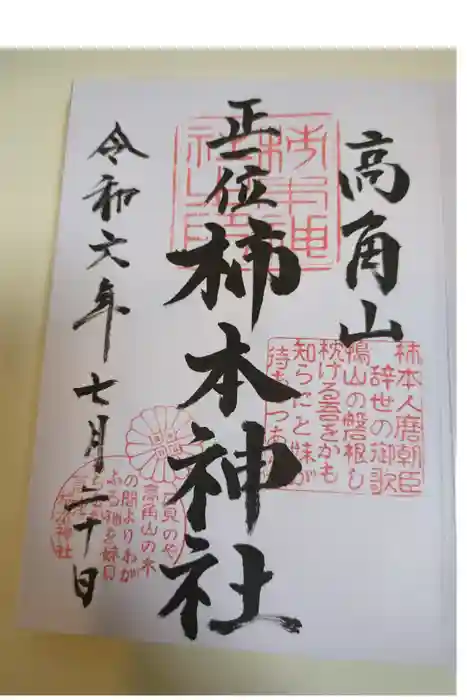 高角山
正一位
柿本神社
令和六年七月二十日
柿本人麿朝臣
辞世の御歌
鴨山の磐根し
枕ける吾をかも
知らにと妹が
待ちつつあ
石見のや
高角山の木
の間よりわが
ふる袖を妹見
神社